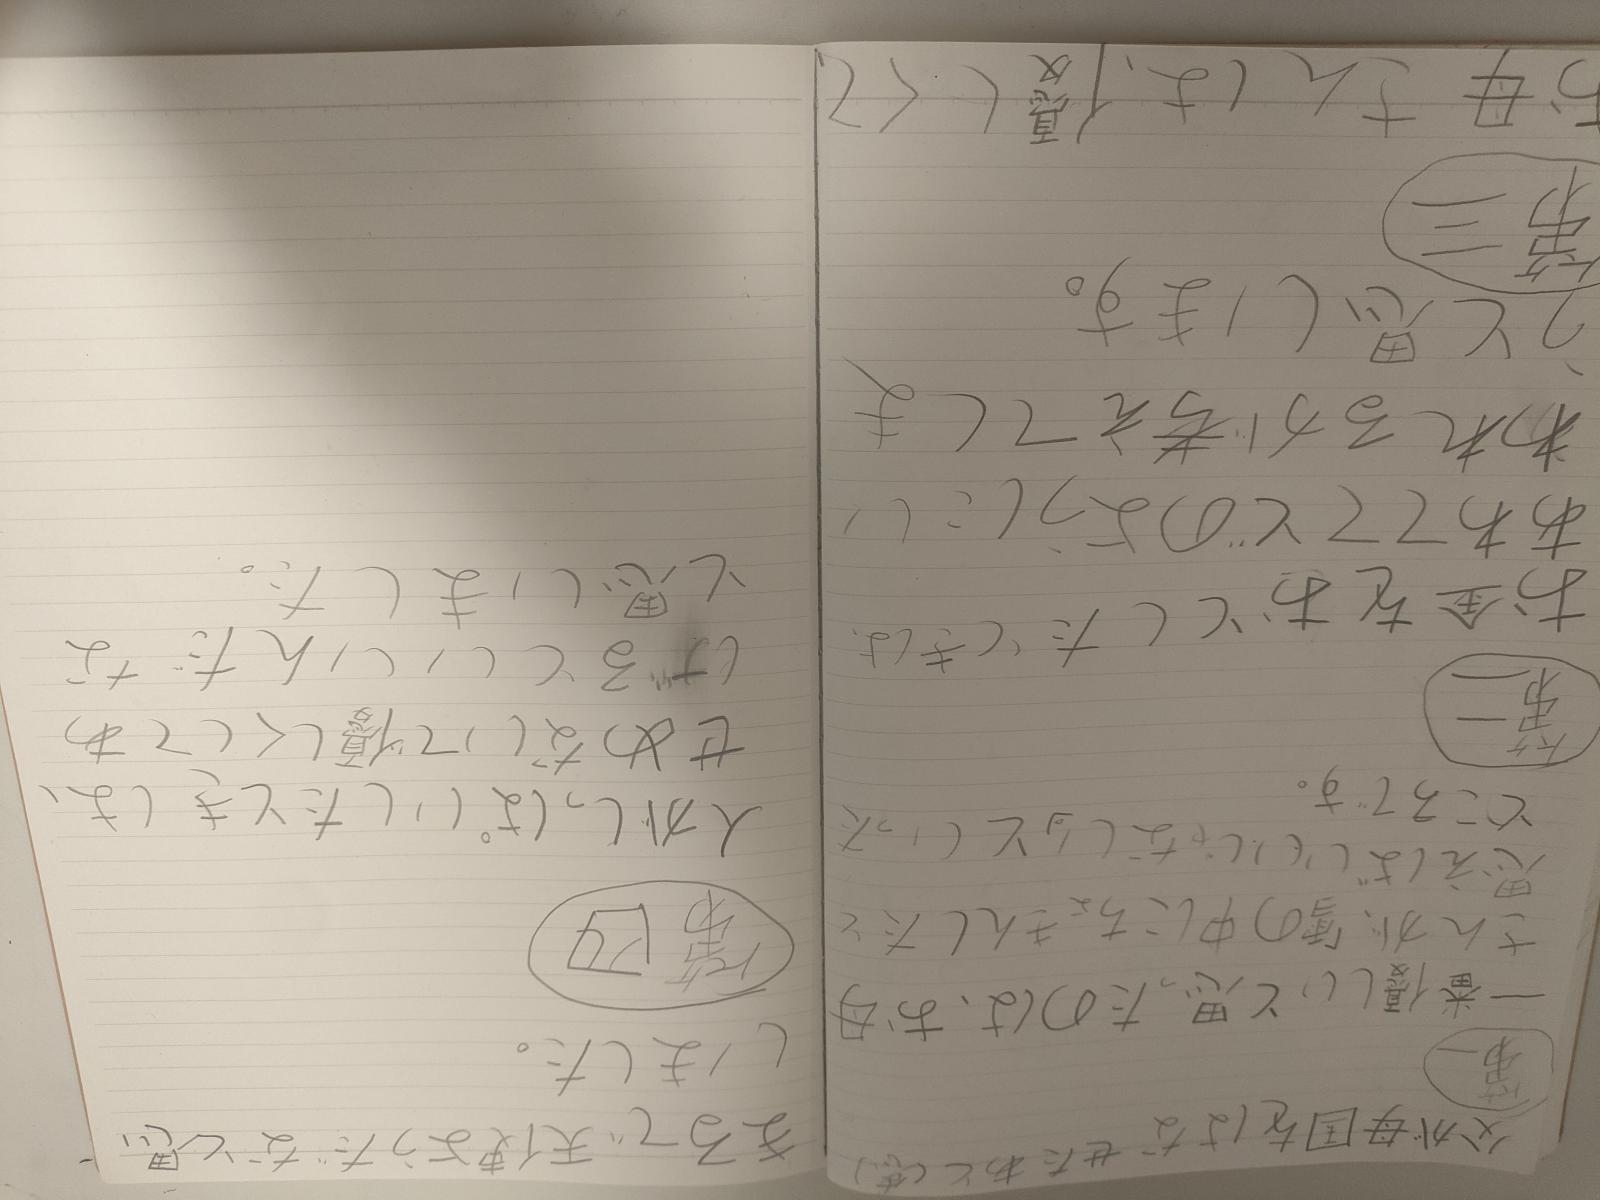 父が母国をはなせたあと
第一
一番優しいと思ったのは、お母
さんが、雪の中にちょきんしたと
思えばいいじゃないっといった
ところです。
第二
お金をおとしたときは、
あわててどのようにい
われるか考えてしま
うと思います。
第三
お母さんは、優しくて
まるで天使ようだなと思
いました。
第四
人がしっぱいしたときは、
せめないで優しくしてあ
げるといいんだな
と思いました。